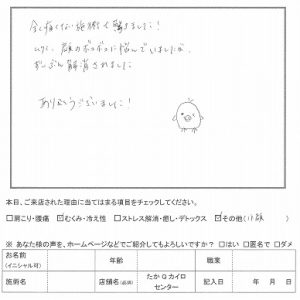 全く痛くない施術に驚きました!
ひどく、顔のボコボコに悩んでいましたが、
ずいぶん解消されました
ありがとうございました!
本日、ご来店された理由に当てはまる項目をチェックしてください。
□肩こり・腰痛 ☑むくみ・冷え性 □ストレス解消・癒し・デトックス ☑その他(小顔)
※ あなた様の声を、ホームページなどでご紹介してもよろしいですか? □はい □匿名で □ダメ
お名前 (イニシャル可) 年齢 職業
施術名 店舗名(必須) たかQカイロセンター 記入日 年 月 日